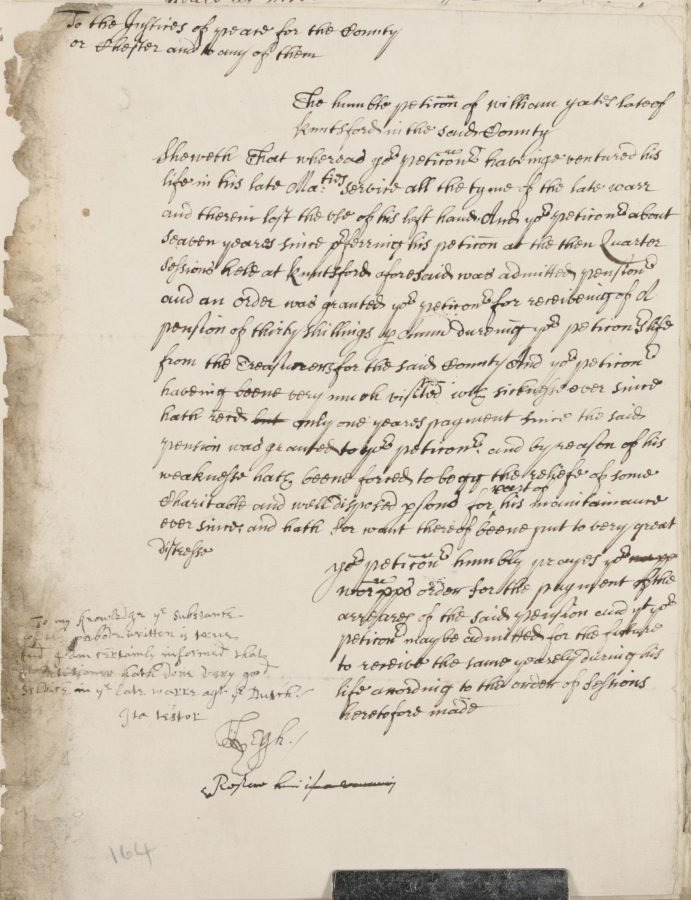 To the Justices of peace for the County
of Chester and to any of them
The humble peticōn of william yates late of
Knutsford in the said County
Sheweth That whereas yor peticonr haveinge ventured his
life in his late Maties service all the tyme of the late warr
and therein lost the vse of his left hand And yor peticonr about
seaven yeares since pferring his peticōn at the then Quarter
Sessions held at Knutsford aforesaid was admitted pensionr
and an order was granted yor peticonr for receiveing of A
pension of thirty shillings p Annū dureing yor peticonrs life
from the Treasurers for the said County And yor peticonr
haveing beene very much visitted with sicknesse ever since
hath recd but only one yeares payment since the said
pension was granted to yor peticonr and by reason of his
weaknesse hath beene forced to begg the releife of some
Charitable and well disposed psons for part of his maintainance
ever since and hath for want thereof beene put to very great
distresse
yor peticonr humbly prayes yor
worpps order for the payment of the
arreares of the said pension and yt yor
peticonr may be admitted for the future
to receive the same yearely during his
life according to the order of sessions
heretofore made
To my knowledge ye substance
of the above written is true
and I am certainly informed that
petitioner hath done very good
service in ye late warrs agst ye Dutch
Ita testor
Tho Legh
164